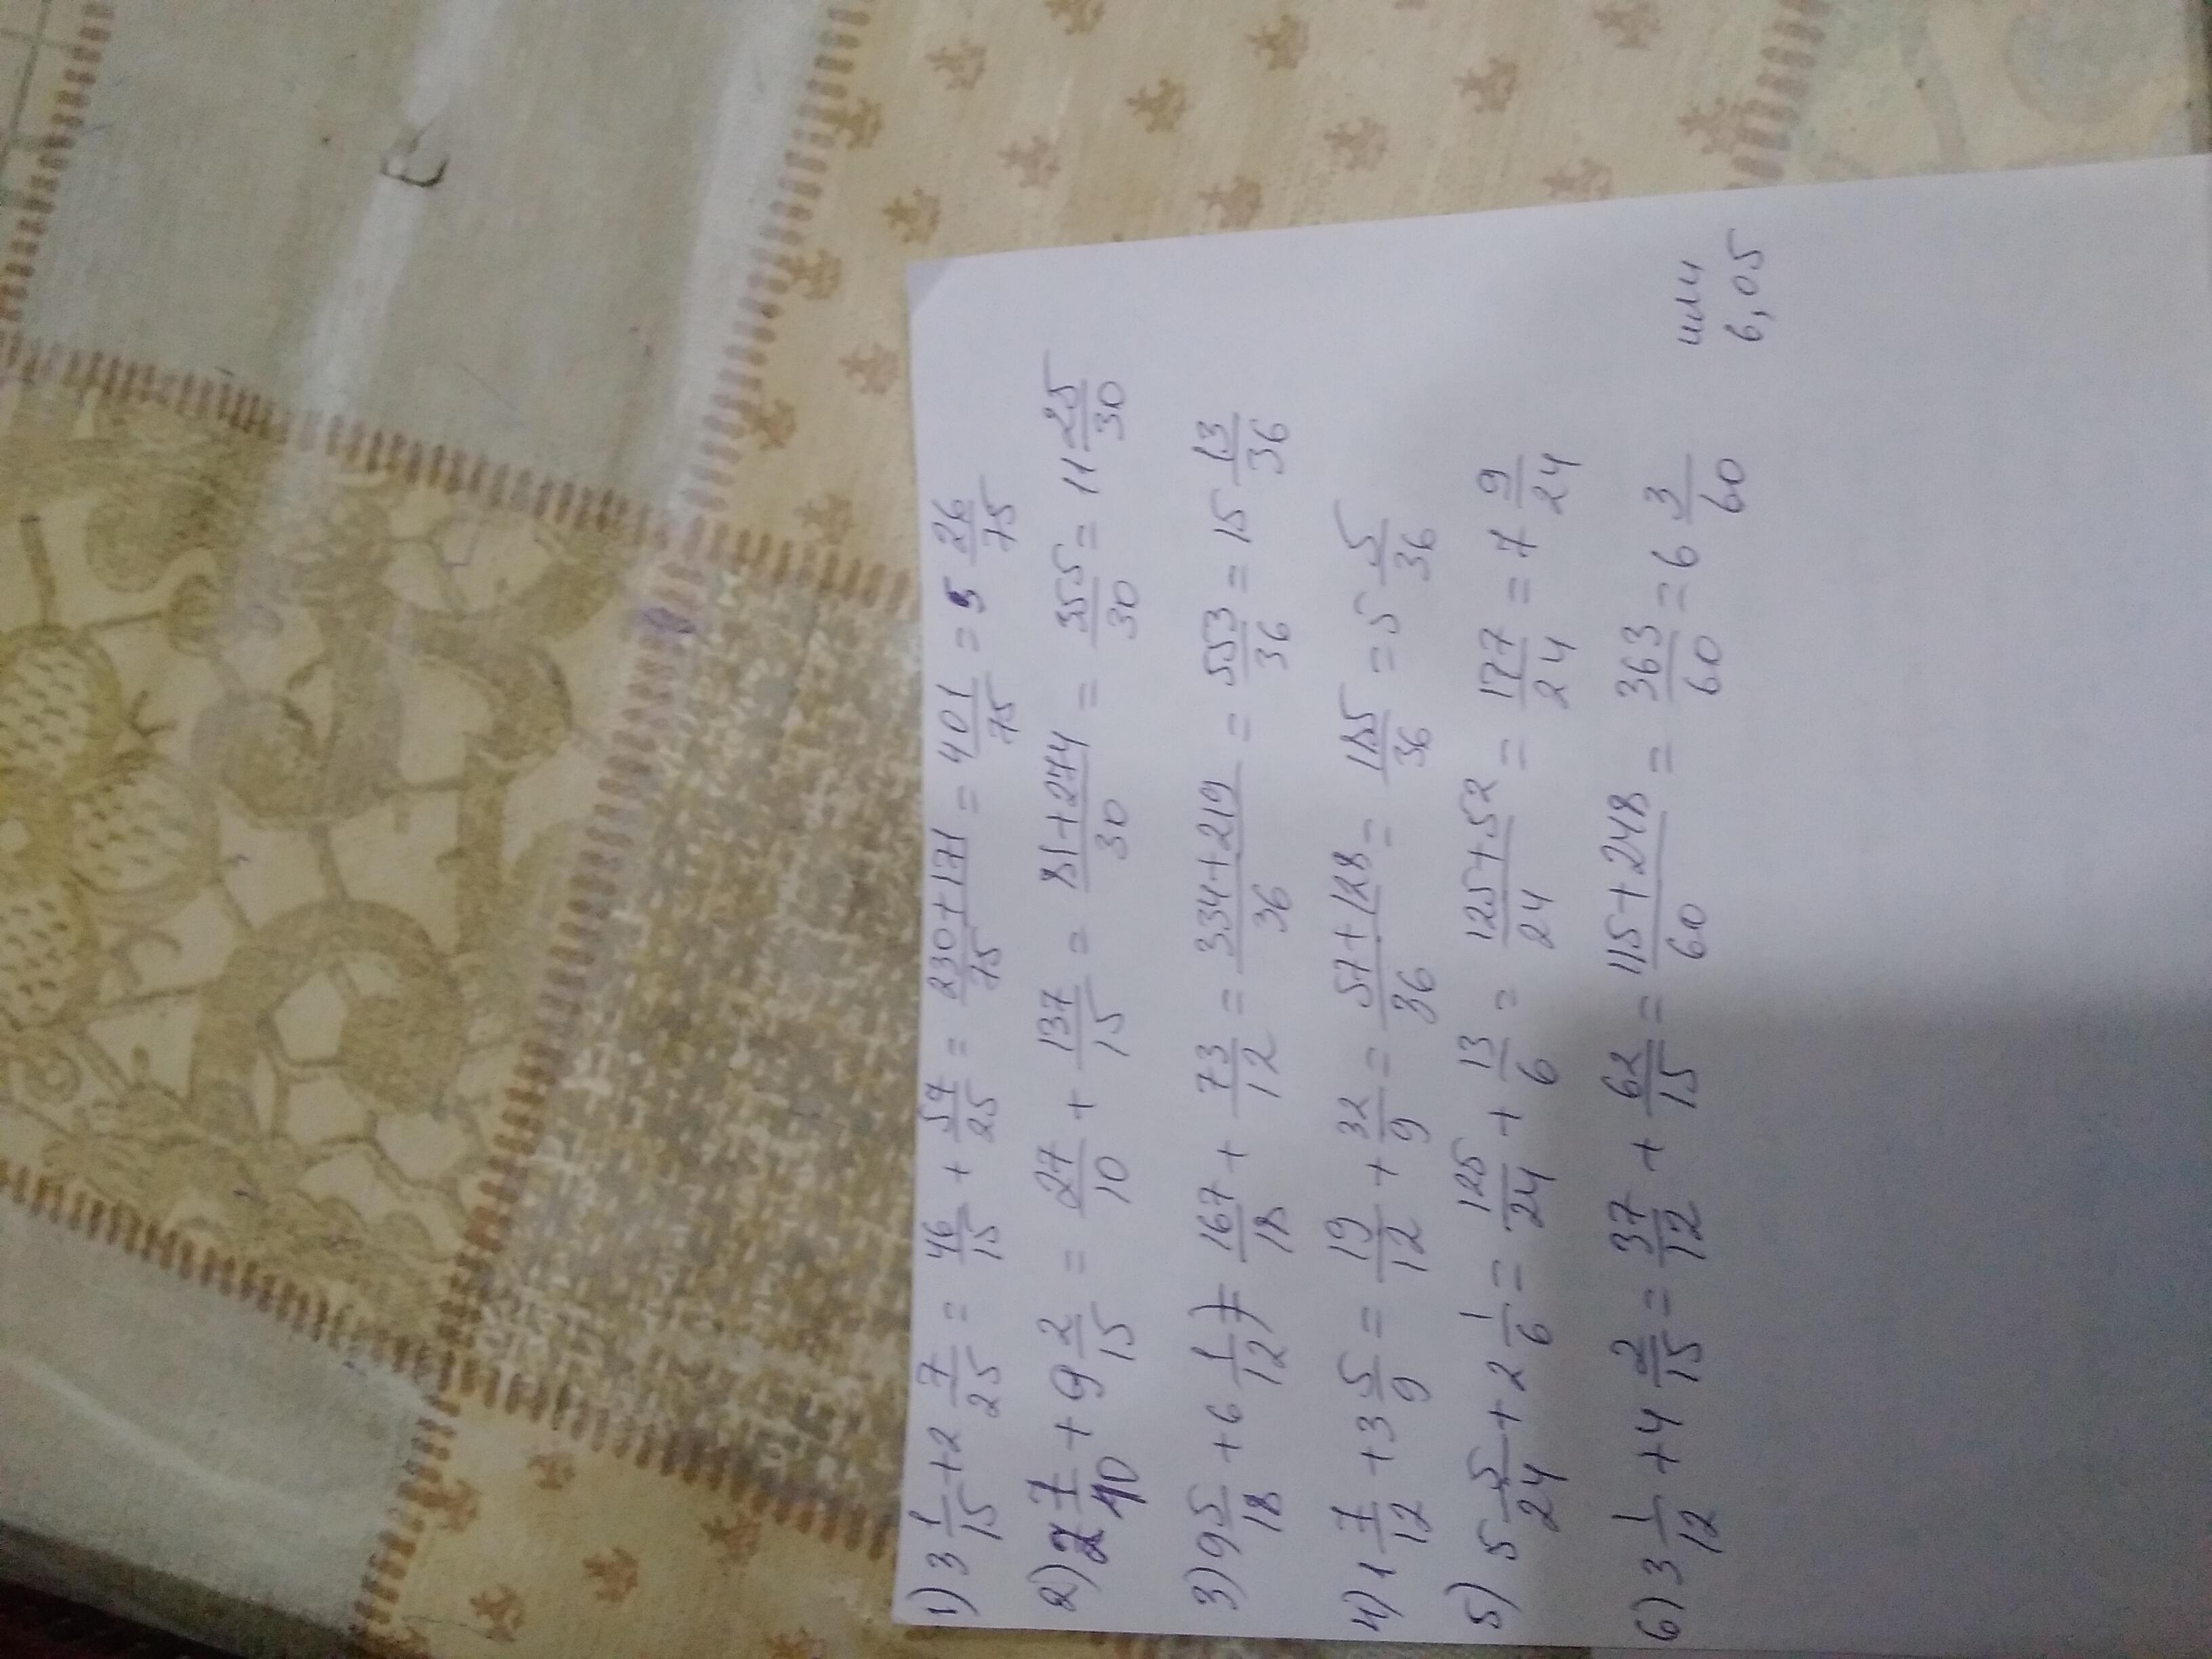 1) 3 1/15 + 2 7/25 = 46/15 + 57/25 = 230+171/75 = 401/75 = 5 26/75
2) 2 7/10 + 9 2/15 = 27/10 + 137/15 = 81+274/30 = 355/30 = 11 25/30
3) 9 5/18 + 6 1/12 ) = 167/18 + 73/12 = 334+219/36 = 553/36 = 15 13/36
4) 1 7/12 + 3 5/9 = 19/12 + 32/9 = 57+128/36 = 185/36 = 5 5/36
5) 5 5/24 + 2 1/6 = 125/24 + 13/6 = 125+52/24 = 177/24 = 7 9/24
6) 3 1/12 + 4 2/15 = 37/12 + 62/15 = 115+248/60 = 363/60 = 6 3/60 или
6,05